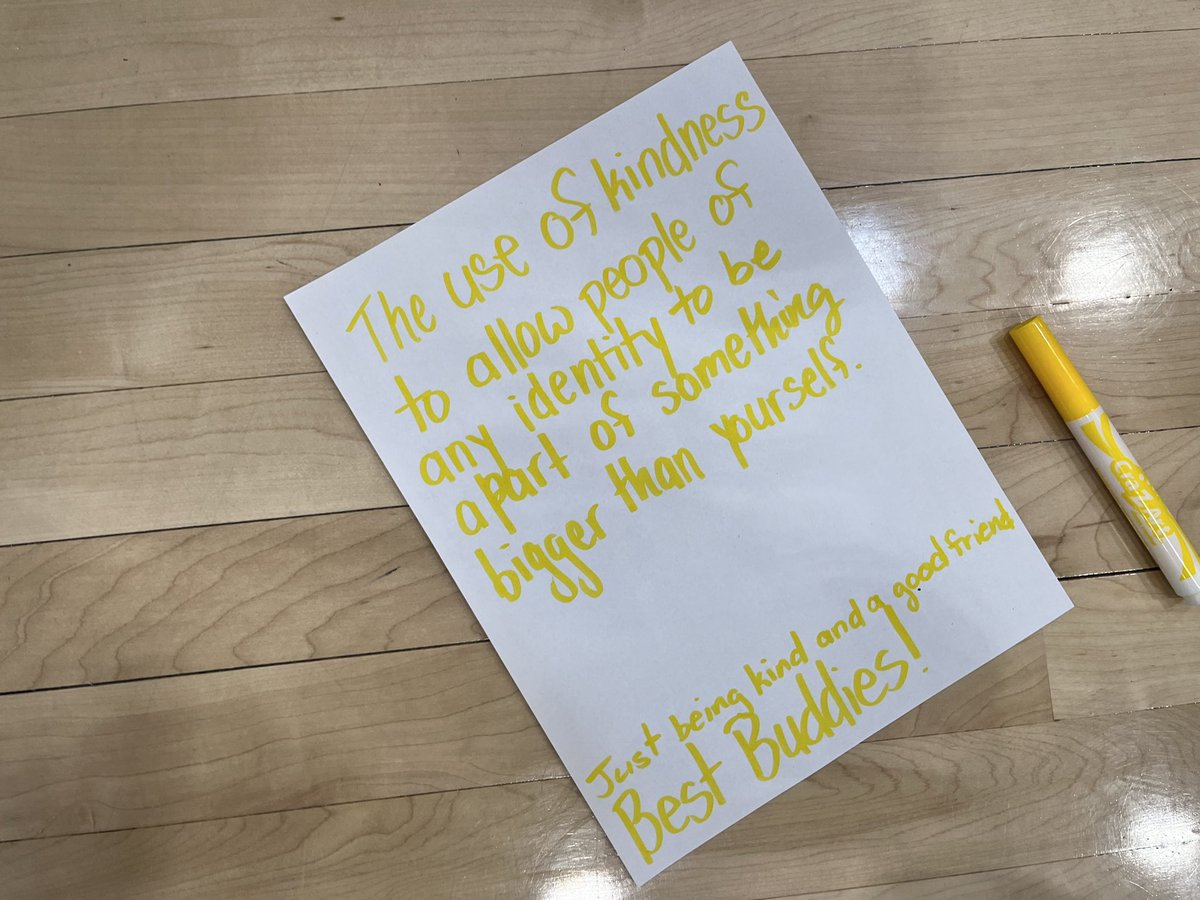 The use of kindness
to allow people of
any identity to be
apart of something
bigger than yourself.
Just being kind and a good friend
Best Buddies!